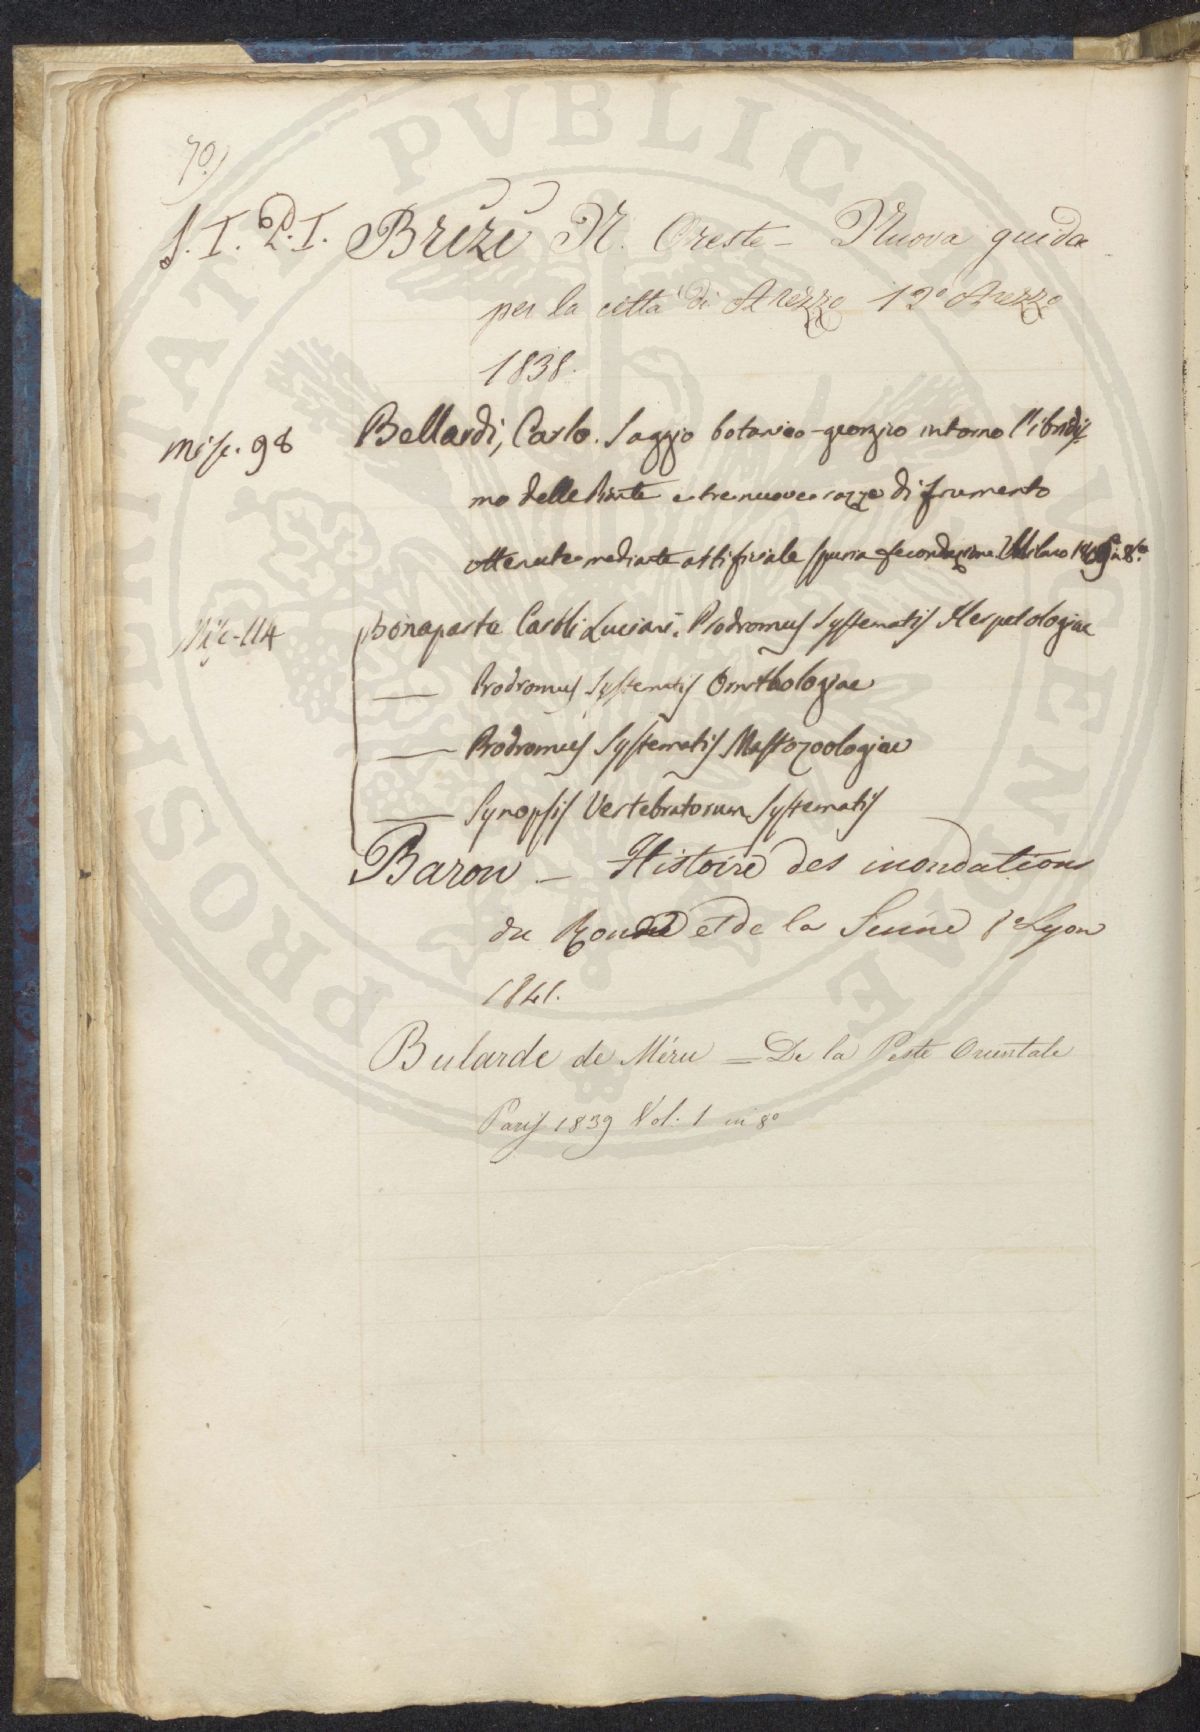 70)
S. I. P. I. Brizi N. Oreste - Nuova guida
per la città di Arezzo 12º Arezzo
1838.
Misc. 98 Bellardi, Carlo. Saggio botanico-georgico intorno l'ibridis
mo delle Piante e tre nuove razze di frumento
ottenute mediante artifiziale spuria fecondazione. Milano in 8vo
Misc. 114 Bonaparte Caroli Luciani. Prodromus Systematis Herpetologiae
— Prodromus Systematis Ornithologiae
— Prodromus Systematis Mastozoologiae
— Synopsis Vertebratorum Systematis
Baron - Histoire des inondations
du et de la Lyon
1841.
Bularde de Méru = De la Peste Orientale
Paris 1839 Vol. 1 in 8º
PROSPERITATI PVBLICAE AVGENDAE